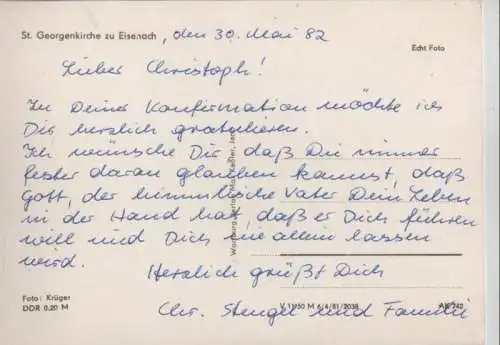 St. Georgenkirche zu Eisenach, den 30. Mai 82
Echt Foto
Lieber Christoph!
Zu Deiner Konfirmation möchte ich
Dir herzlich gratulieren.
Ich wünsche Dir, daß Du immer
fester daran glauben kannst, daß
Gott, der himmlische Vater Dein Leben
in der Hand hat, daß er Dich führen
will und Dich nie allein lassen
wird.
Herzlich grüßt Dich
Chr. Stengel und Familie
Foto: Krüger
DDR 0.20 M
V 11/50 M 6/4/81/2038